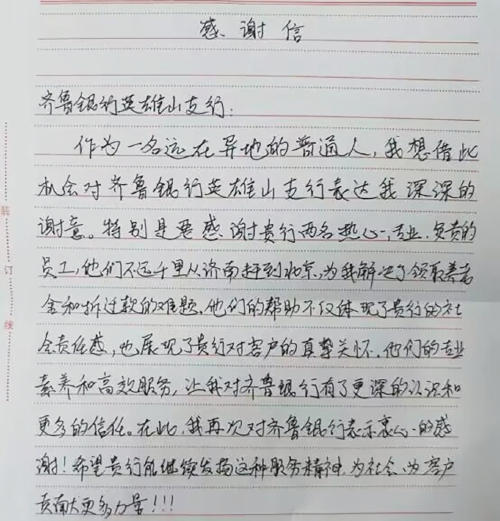 感谢信
齐鲁银行英雄山支行:
作为一名远在异地的普通人,我想借此
机会对齐鲁银行英雄山支行表达我深深的
谢意。特别是要感谢贵行两名热心、专业、负责的
员工,他们不远千里从济南赶到北京,为我解决了领取养老
金和拆迁款的难题。他们的帮助不仅体现了贵行的社
会责任感,也展现了贵行对客户的真挚关怀。他们的专业
素养和高效服务,让我对齐鲁银行有了更深的认识和
更多的信任。在此,我再次对齐鲁银行表示衷心的感
谢!希望贵行能继续发扬这种服务精神,为社会、为客户
贡献更多力量!!!
装
订
线